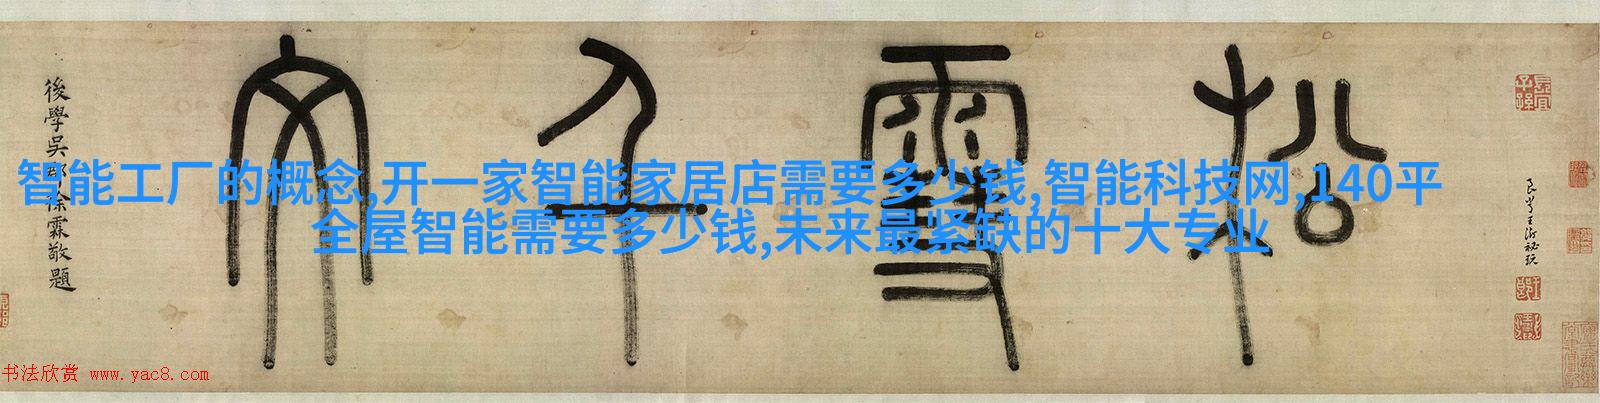 松雪千文
後學吳郡徐霖敬題
良常王澍秘玩
長宜子孫
智能工厂的概念,开一家智能家居店需要多少钱,智能科技网,140平
全屋智能需要多少钱,未来最紧缺的十大专业
书法欣赏 www.yac8.com